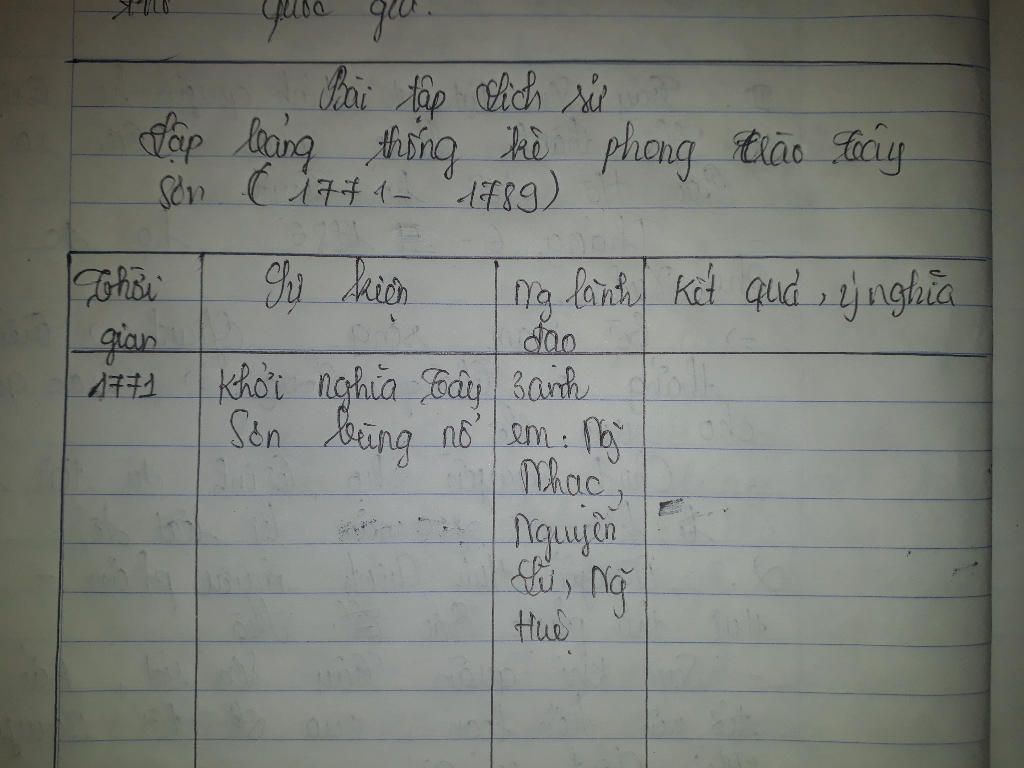 quốc gia.
Bài tập Lịch sử
Lập bảng thống kê phong trào Tây
Sơn (1771- 1789)
Thời
gian
Sự kiện
Ng lành
đạo
Kết quả, ý nghĩa
1771
Khởi nghĩa Tây
Sơn bùng nổ
3 anh
em: Ng̃
Nhạc,
Nguyễn
Lữ, Ng̃
Huệ